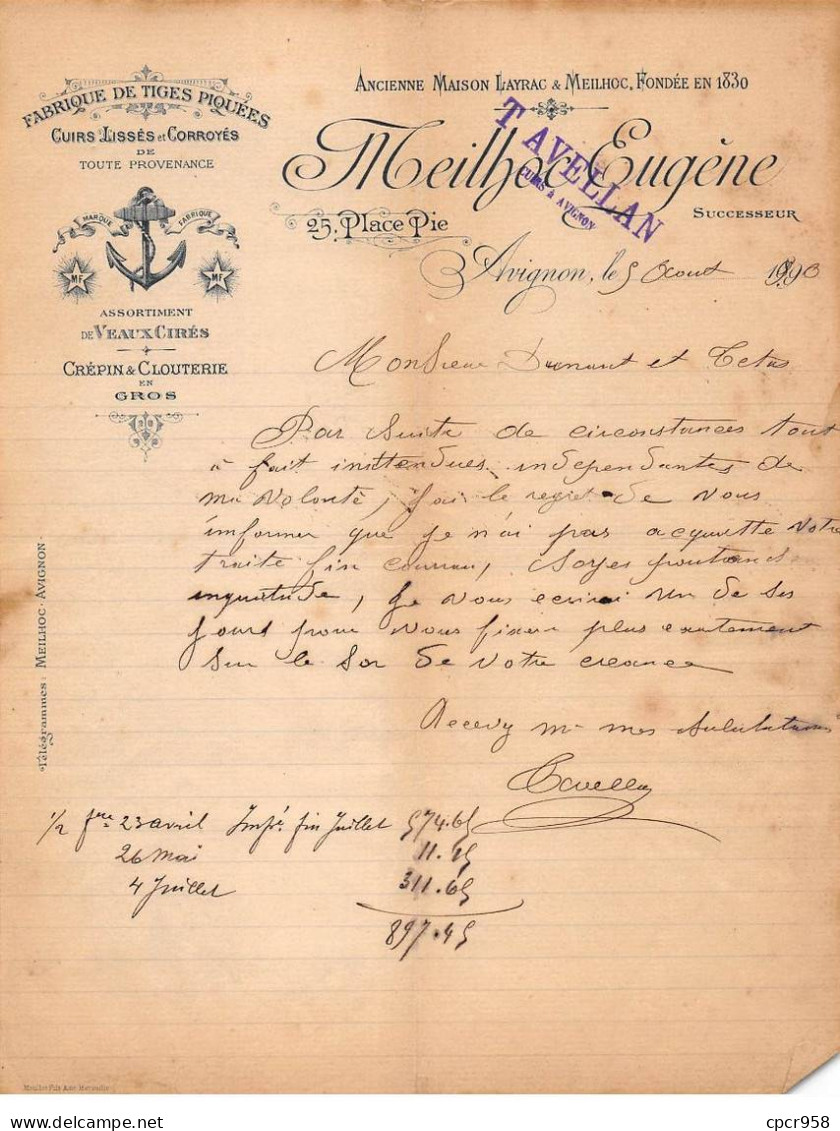 FABRIQUE DE TIGES PIQUÉES
CUIRS LISSÉS et CORROYÉS
DE
TOUTE PROVENANCE
MARQUE FABRIQUE
MF MF
ASSORTIMENT
DE VEAUX CIRÉS
CRÉPIN & CLOUTERIE
EN
GROS
Télégrammes: MEILHOC-AVIGNON
ANCIENNE MAISON LAYRAC & MEILHOC, FONDÉE EN 1830
Meilhoc Eugène
T AVELLAN
CUIRS à AVIGNON
SUCCESSEUR
25, Place Pie
Avignon, le 5 Aout 1890
Monsieur et
Par suite de circonstances tout
à fait inattendues independantes de
ma volonté, j'ai le regret de vous
informer que je n'ai pas acquitte votre
traite fin couran, Soyes
inquietude, Je vous ecrirai un de ses
jours pour vous fixer plus exactement
sur le sor de votre creance
Recevez mes Salutations
1/2 fre 23 avril fin Juillet 574.65
26 Mai 11.15
4 Juillet 311.65
897.45
cpcr958